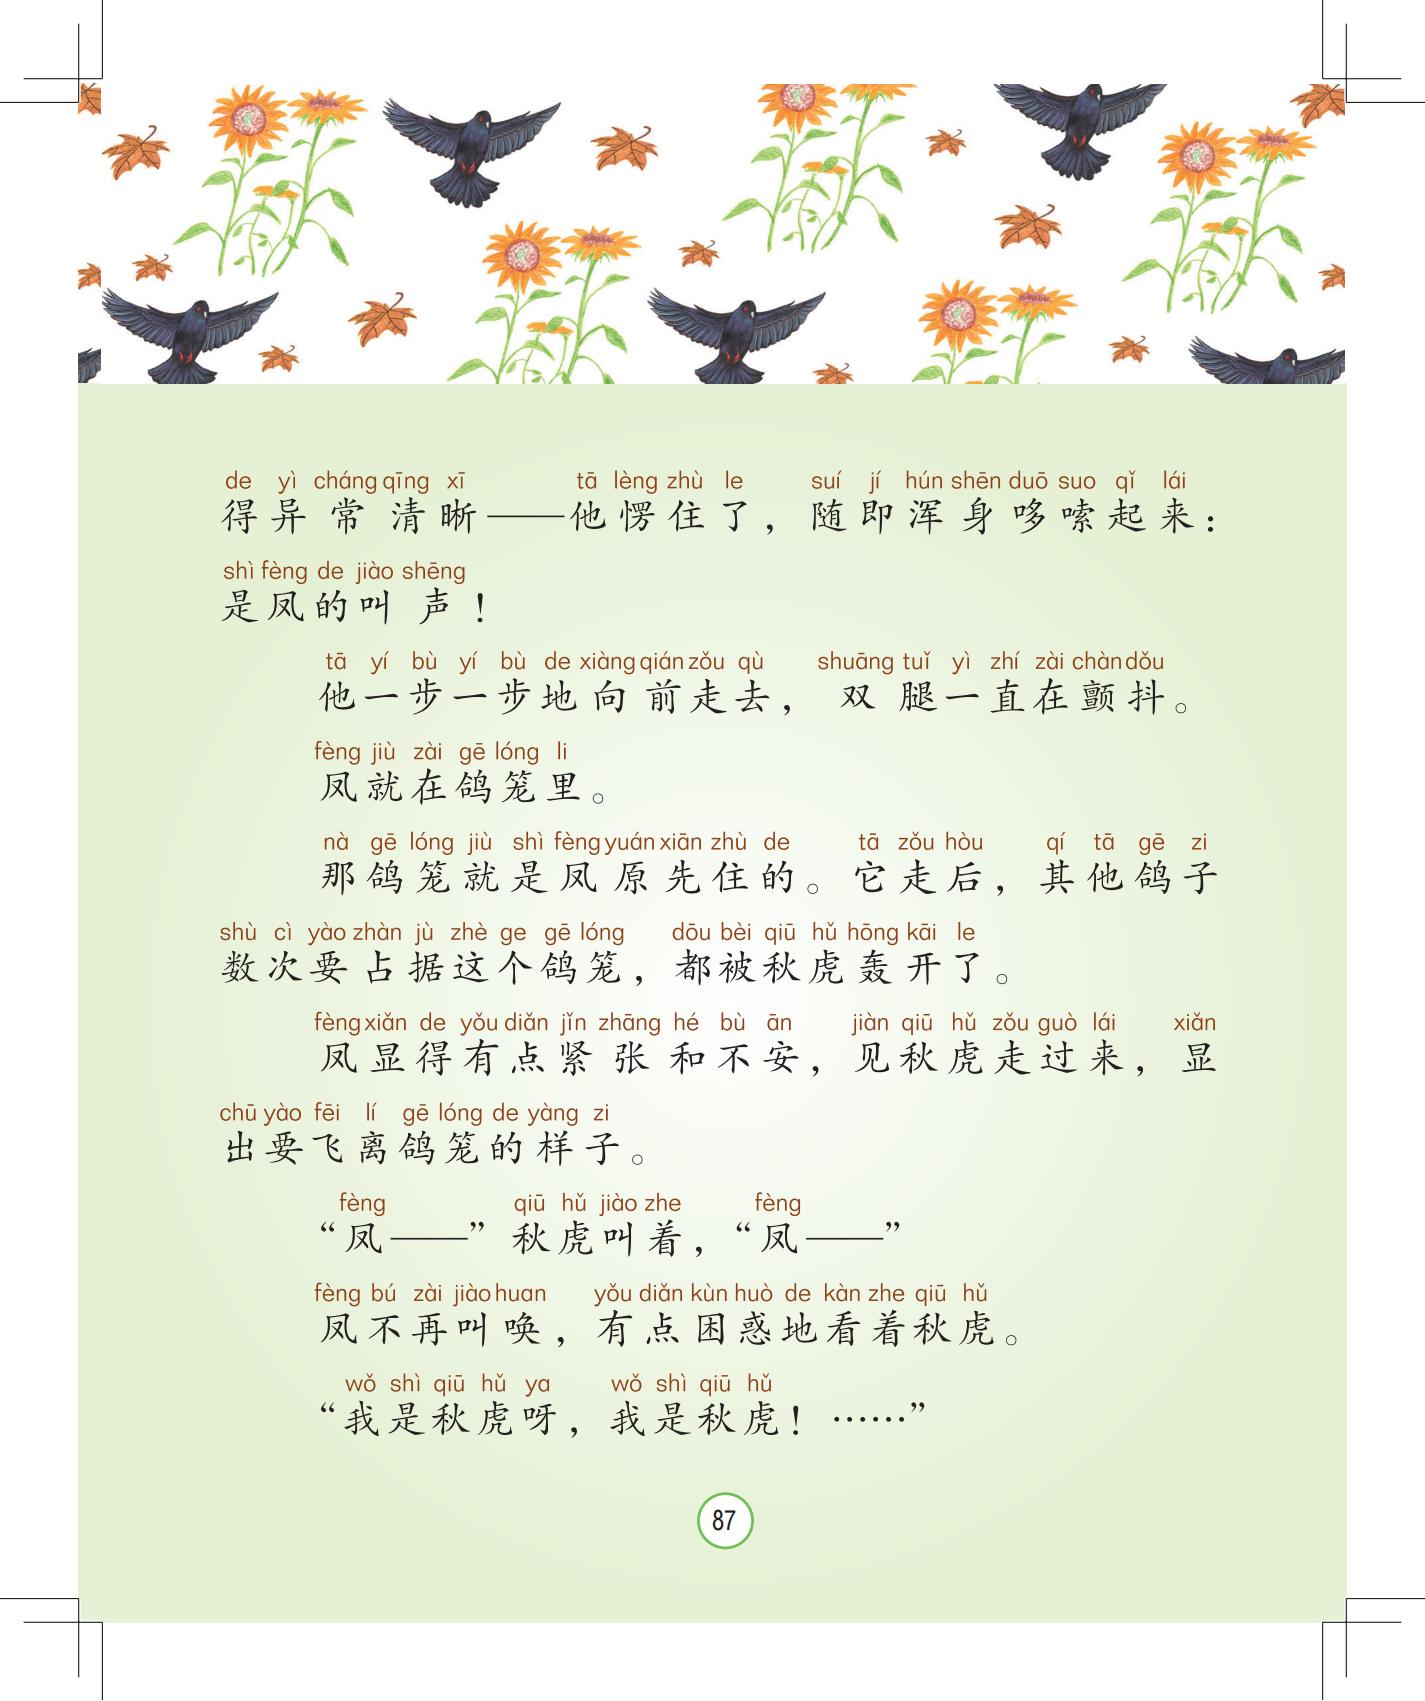 de yì cháng qīng xī tā lèng zhù le suí jí hún shēn duō suo qǐ lái
得异常清晰——他愣住了，随即浑身哆嗦起来：
shì fèng de jiào shēng
是凤的叫声！
tā yí bù yí bù de xiàng qián zǒu qù shuāng tuǐ yì zhí zài chàn dǒu
他一步一步地向前走去，双腿一直在颤抖。
fèng jiù zài gē lóng li
凤就在鸽笼里。
nà gē lóng jiù shì fèng yuán xiān zhù de tā zǒu hòu qí tā gē zi
那鸽笼就是凤原先住的。它走后，其他鸽子
shù cì yào zhàn jù zhè ge gē lóng dōu bèi qiū hǔ hōng kāi le
数次要占据这个鸽笼，都被秋虎轰开了。
fèng xiǎn de yǒu diǎn jǐn zhāng hé bù ān jiàn qiū hǔ zǒu guò lái xiǎn
凤显得有点紧张和不安，见秋虎走过来，显
chū yào fēi lí gē lóng de yàng zi
出要飞离鸽笼的样子。
fèng qiū hǔ jiào zhe fèng
“凤——”秋虎叫着，“凤——”
fèng bú zài jiào huan yǒu diǎn kùn huò de kàn zhe qiū hǔ
凤不再叫唤，有点困惑地看着秋虎。
wǒ shì qiū hǔ ya wǒ shì qiū hǔ
“我是秋虎呀，我是秋虎！……”
87